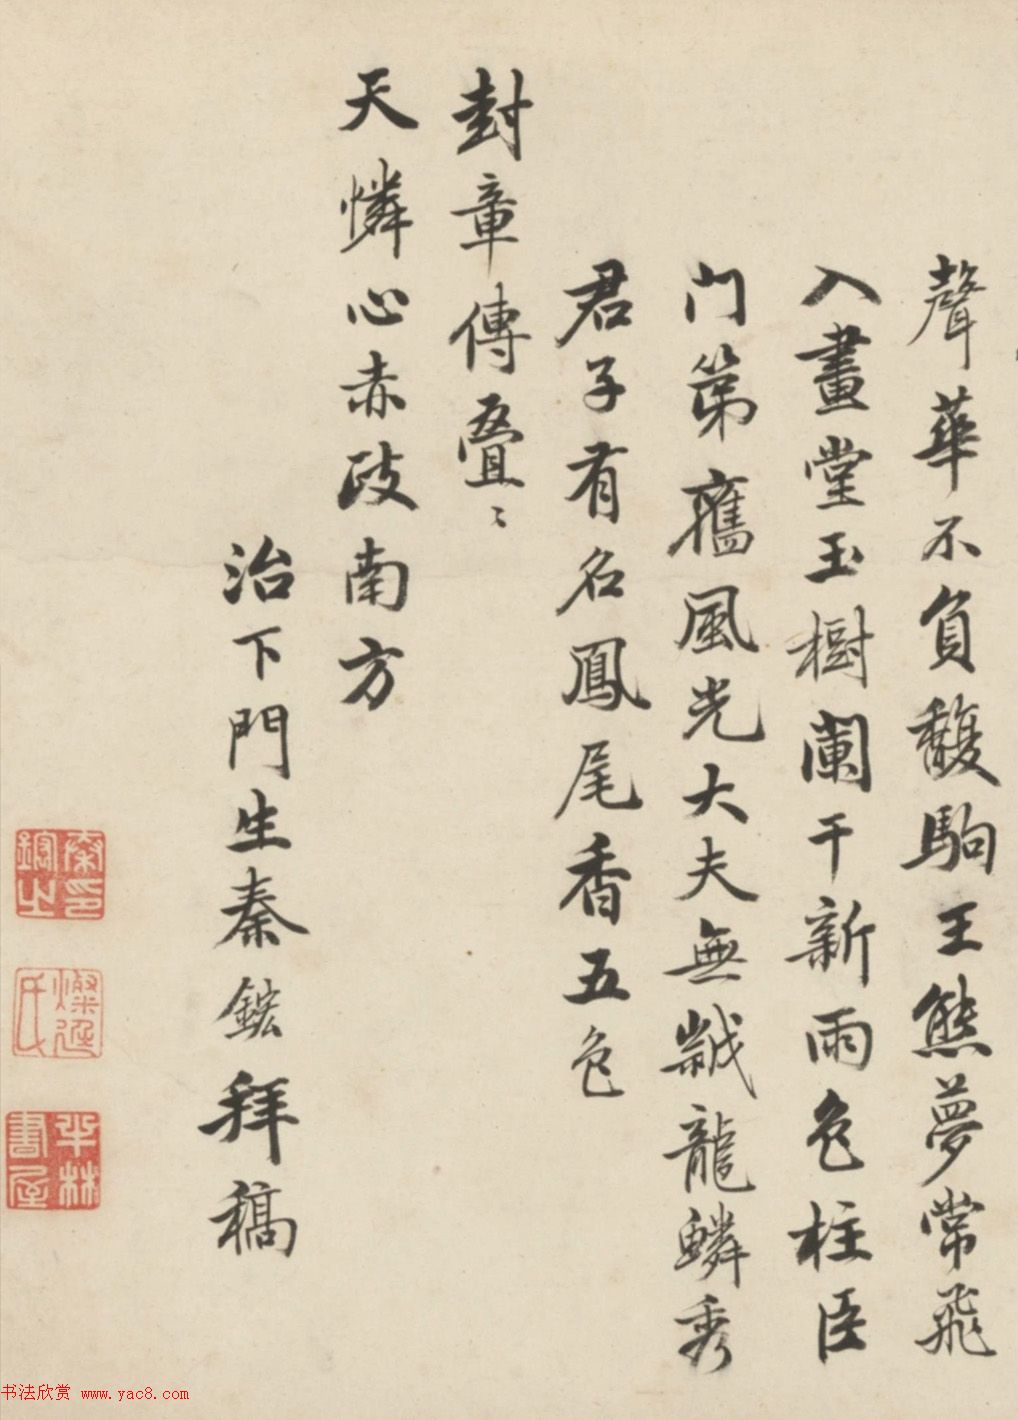 聲華不負馥駒王熊夢常飛
入畫堂玉樹闌干新雨色柱臣
門第舊風光大夫無緎龍鱗秀
君子有名鳳尾香五色
封章傳疊〻
天憐心赤歧南方
治下門生秦鋐拜稿
秦鋐之印
燦廷氏
半林書屋
书法欣赏 www.yac8.com